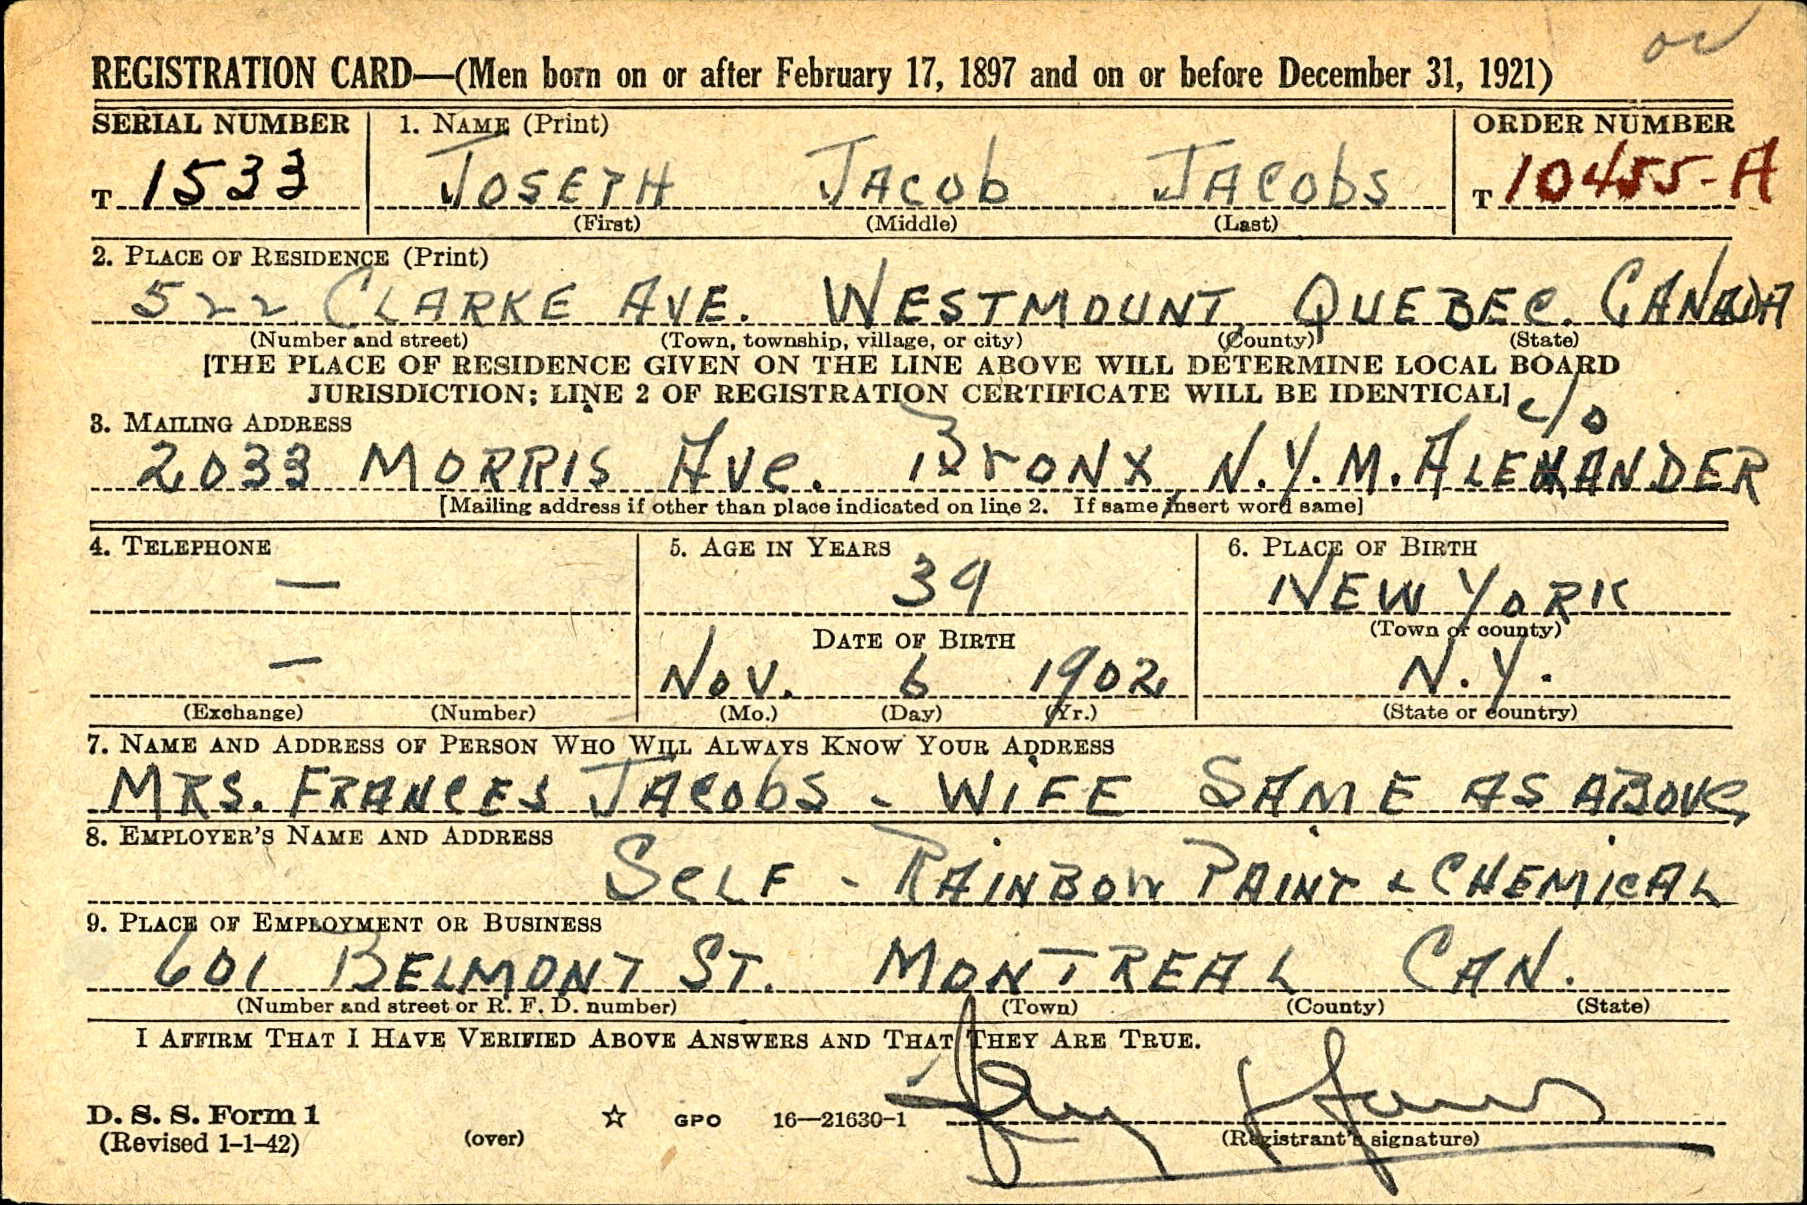 REGISTRATION CARD—(Men born on or after February 17, 1897 and on or before December 31, 1921)
SERIAL NUMBER 1. NAME (Print) ORDER NUMBER
T 1533 JOSEPH JACOB JACOBS T 10455-A
(First) (Middle) (Last)
2. PLACE OF RESIDENCE (Print)
522 CLARKE AVE. WESTMOUNT QUEBEC. CANADA
(Number and street) (Town, township, village, or city) (County) (State)
[THE PLACE OF RESIDENCE GIVEN ON THE LINE ABOVE WILL DETERMINE LOCAL BOARD
JURISDICTION; LINE 2 OF REGISTRATION CERTIFICATE WILL BE IDENTICAL]
3. MAILING ADDRESS c/o
2033 MORRIS AVE. BRONX, N.Y. M. ALEXANDER
[Mailing address if other than place indicated on line 2. If same insert word same]
4. TELEPHONE 5. AGE IN YEARS 6. PLACE OF BIRTH
— 39 NEW YORK
DATE OF BIRTH (Town or county)
— NOV. 6 1902 N.Y.
(Exchange) (Number) (Mo.) (Day) (Yr.) (State or country)
7. NAME AND ADDRESS OF PERSON WHO WILL ALWAYS KNOW YOUR ADDRESS
MRS. FRANCES JACOBS - WIFE SAME AS ABOVE
8. EMPLOYER'S NAME AND ADDRESS
SELF - RAINBOW PAINT & CHEMICAL
9. PLACE OF EMPLOYMENT OR BUSINESS
601 BELMONT ST. MONTREAL CAN.
(Number and street or R. F. D. number) (Town) (County) (State)
I AFFIRM THAT I HAVE VERIFIED ABOVE ANSWERS AND THAT THEY ARE TRUE.
D. S. S. Form 1
(Revised 1-1-42) (over) ☆ GPO 16—21630-1 (Registrant's signature)